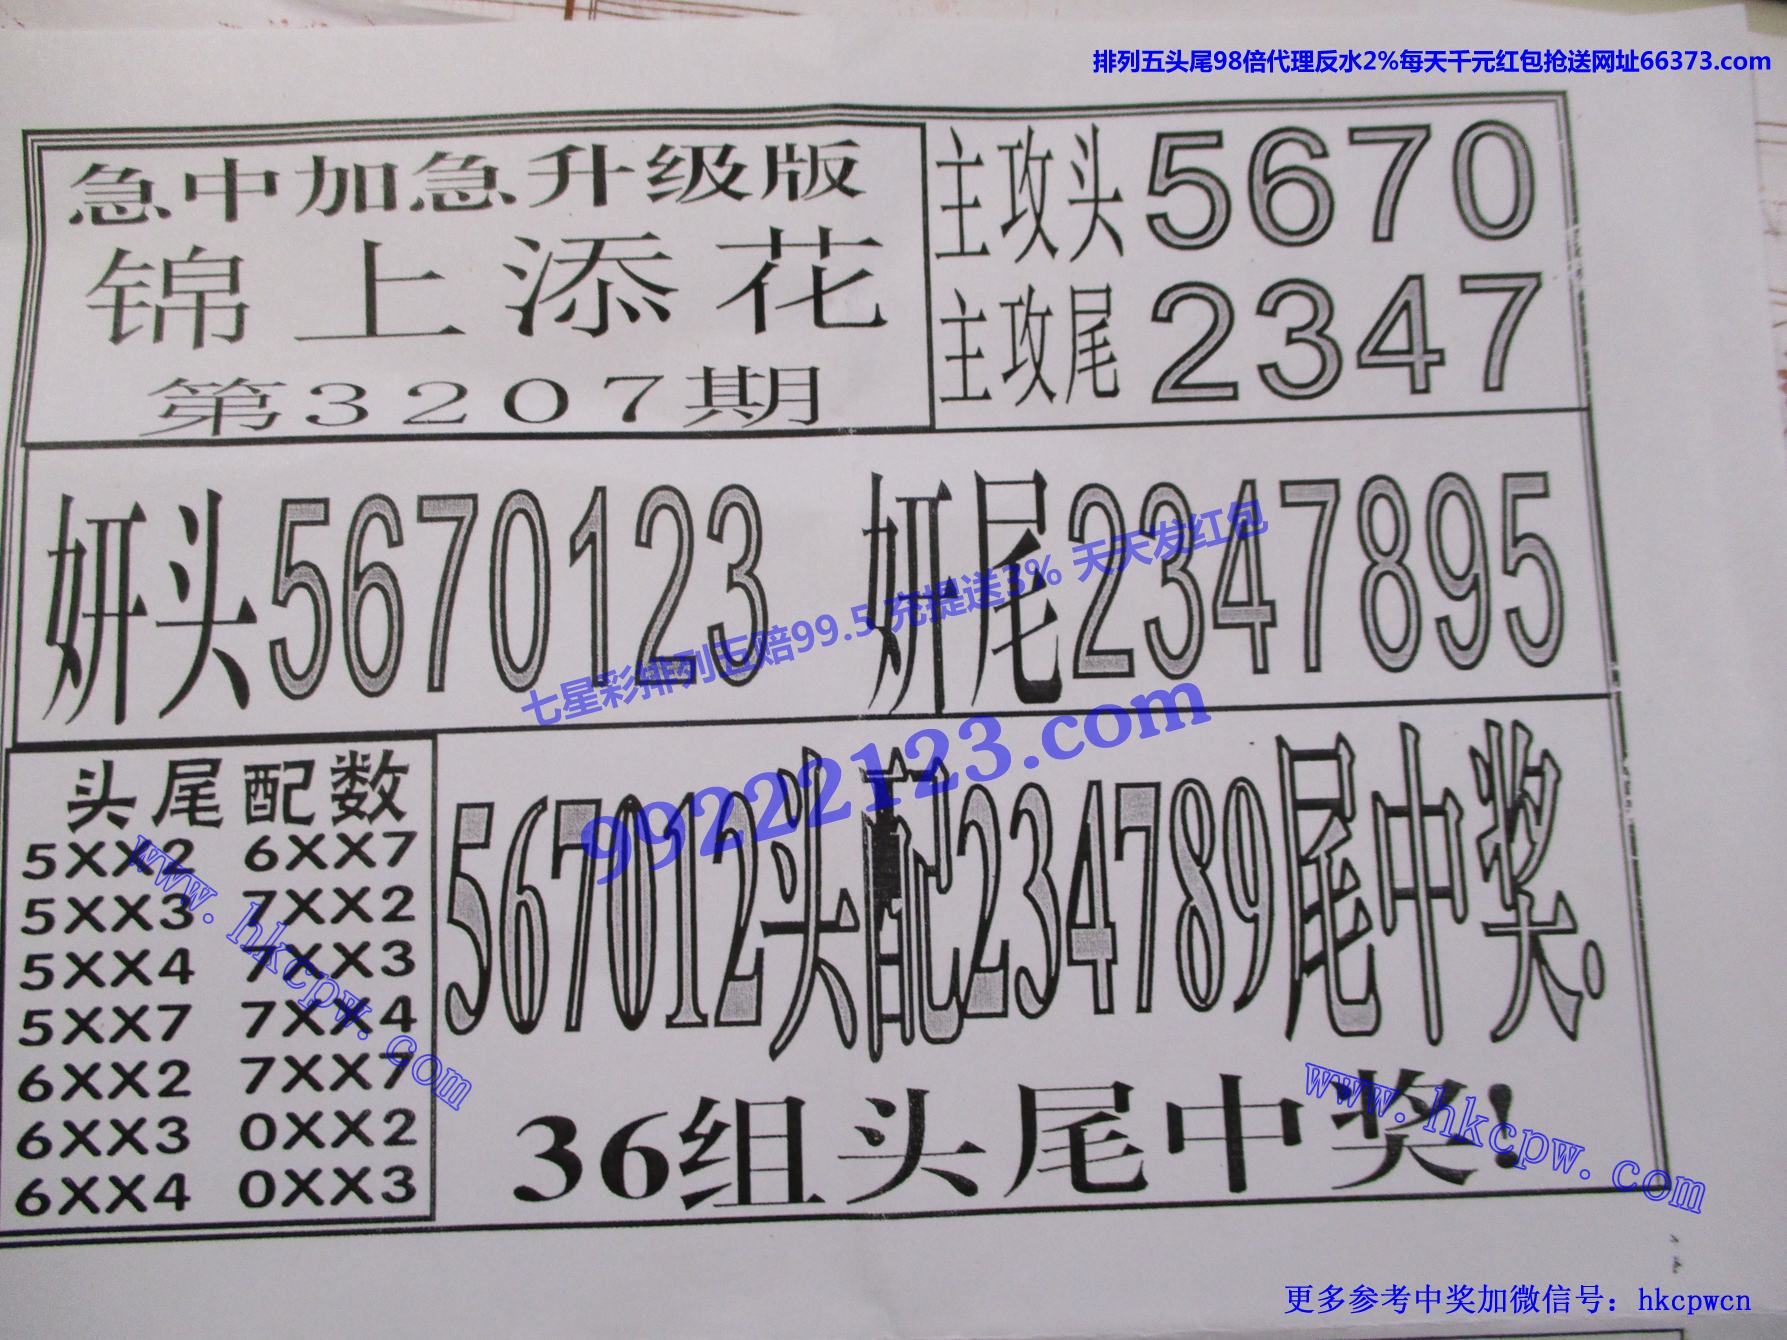 排列五头尾98倍代理反水2%每天千元红包抢送网址66373.com
急中加急升级版
锦上添花
第3207期
主攻头5670
主攻尾2347
妍头5670123
妍尾2347895
七星彩排列五赔99.5 充提送3% 天天发红包
99222123.com
头尾配数
5XX2 6XX7
5XX3 7XX2
5XX4 7XX3
5XX7 7XX4
6XX2 7XX7
6XX3 0XX2
6XX4 0XX3
567012头配234789尾中奖.
36组头尾中奖!
www.hkcpw.com
www.hkcpw.com
更多参考中奖加微信号：hkcpwcn